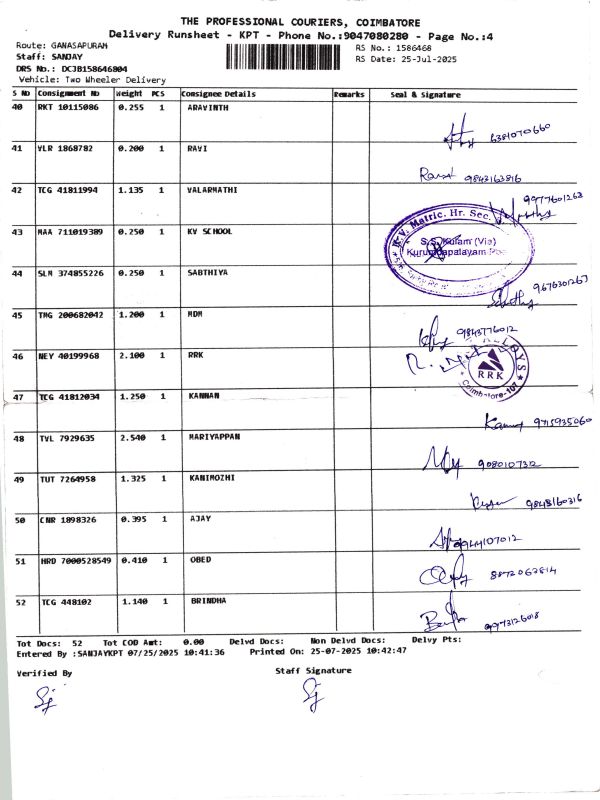 THE PROFESSIONAL COURIERS, COIMBATORE
Delivery Runsheet - KPT - Phone No.:9047080280 - Page No.:4
Route: GANASAPURAM
RS No.: 1586468
Staff: SANJAY
RS Date: 25-Jul-2025
DRS No.: DCJB158646804
Vehicle: Two Wheeler Delivery
S No Consignment No Weight PCS Consignee Details Remarks Seal & Signature
40 RKT 10115086 0.255 1 ARAVINTH
6381070660
41 VLR 1868782 0.200 1 RAVI
9843163816
42 TCG 41811994 1.135 1 VALARMATHI
9977601263
43 MAA 711019389 0.250 1 KV SCHOOL
K.V. Matric. Hr. Sec.
S.S. Kulam (Via)
Kurumbapalayam
44 SLM 374855226 0.250 1 SABTHIYA
9676301267
45 TMG 200682042 1.200 1 MDM
9843776012
46 NEY 40199968 2.100 1 RRK
RRK
Coimbatore-107
47 TCG 41812034 1.250 1 KANNAN
9715935060
48 TVL 7929635 2.540 1 MARIYAPPAN
9080107312
49 TUT 7264958 1.325 1 KANIMOZHI
9848160316
50 CNR 1898326 0.395 1 AJAY
9944107012
51 HRD 7000528549 0.410 1 OBED
8872063814
52 TCG 448102 1.140 1 BRINDHA
9973126018
Tot Docs: 52 Tot COD Amt: 0.00 Delvd Docs: Non Delvd Docs: Delvy Pts:
Entered By :SANJAYKPT 07/25/2025 10:41:36 Printed On: 25-07-2025 10:42:47
Verified By Staff Signature